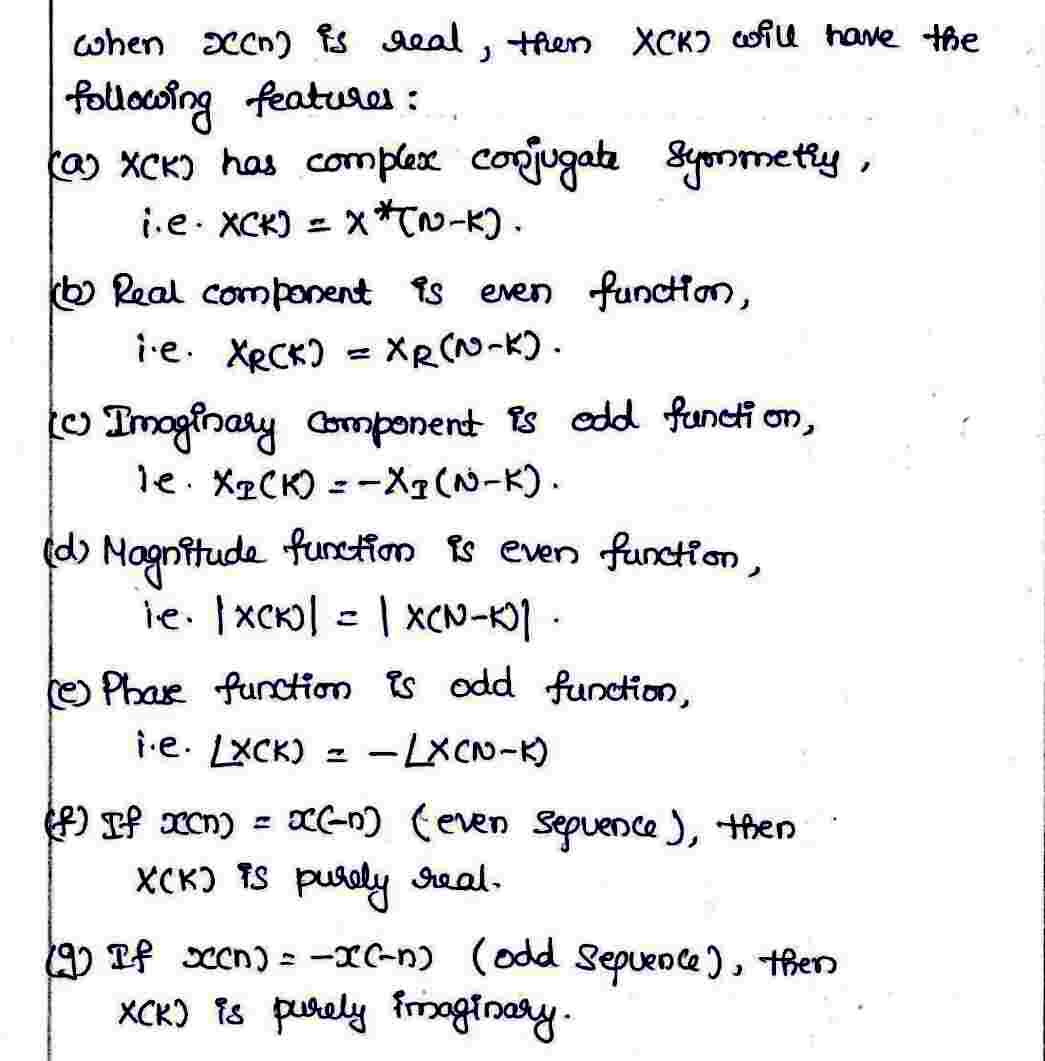 when x(n) is real, then X(K) will have the
following features:
(a) X(K) has complex conjugate symmetry,
i.e. X(K) = X*(N-K).
(b) Real component is even function,
i.e. XR(K) = XR(N-K).
(c) Imaginary component is odd function,
ie. XI(K) = -XI(N-K).
(d) Magnitude function is even function,
i.e. |X(K)| = |X(N-K)|.
(e) Phase function is odd function,
i.e. ∠X(K) = -∠X(N-K)
(f) If x(n) = x(-n) (even sequence), then
X(K) is purely real.
(g) If x(n) = -x(-n) (odd sequence), then
X(K) is purely imaginary.